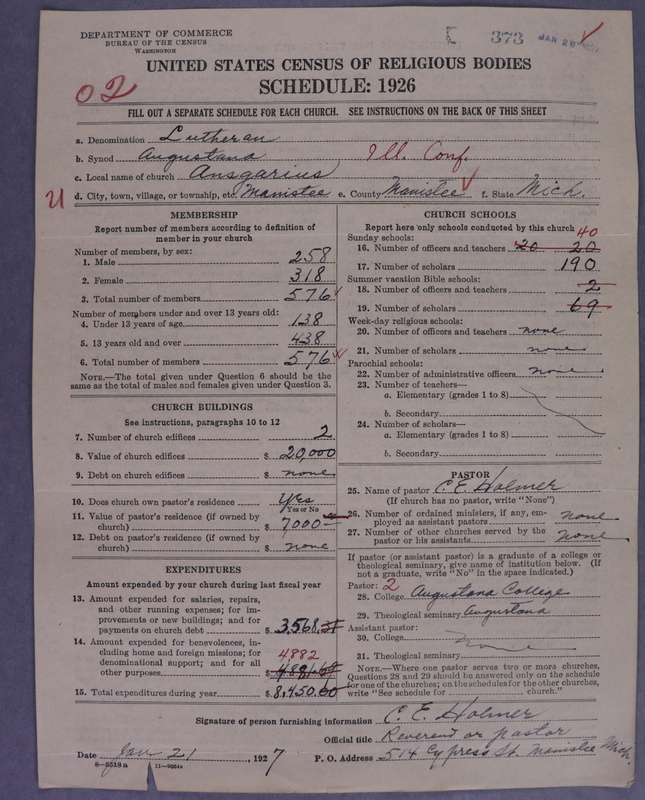 DEPARTMENT OF COMMERCE
BUREAU OF THE CENSUS
WASHINGTON
373 JAN 28
UNITED STATES CENSUS OF RELIGIOUS BODIES
SCHEDULE: 1926
02
FILL OUT A SEPARATE SCHEDULE FOR EACH CHURCH. SEE INSTRUCTIONS ON THE BACK OF THIS SHEET
a. Denomination Lutheran
b. Synod Augustana Ill. Conf.
c. Local name of church Ansgarius
U d. City, town, village, or township, etc. Manistee e. County Manistee f. State Mich.
MEMBERSHIP
Report number of members according to definition of
member in your church
Number of members, by sex:
1. Male 258
2. Female 318
3. Total number of members 576
Number of members under and over 13 years old:
4. Under 13 years of age 138
5. 13 years old and over 438
6. Total number of members 576
NOTE.—The total given under Question 6 should be
same as the total of males and females given under Question 3.
CHURCH BUILDINGS
See instructions, paragraphs 10 to 12
7. Number of church edifices 2
8. Value of church edifices $ 20,000
9. Debt on church edifices $ none
10. Does church own pastor's residence Yes
Yes or No
11. Value of pastor's residence (if owned by
church) $ 7,000
12. Debt on pastor's residence (if owned by
church) $ none
EXPENDITURES
Amount expended by your church during last fiscal year
13. Amount expended for salaries, repairs,
and other running expenses; for im-
provements or new buildings; and for
payments on church debt $ 3,568.31
14. Amount expended for benevolences, in-
cluding home and foreign missions; for 4882
denominational support; and for all
other purposes $ 4881.69
15. Total expenditures during year $ 8,450.00
CHURCH SCHOOLS
Report here only schools conducted by this church 40
Sunday schools:
16. Number of officers and teachers 20 20
17. Number of scholars 190
Summer vacation Bible schools:
18. Number of officers and teachers 2
19. Number of scholars 69
Week-day religious schools:
20. Number of officers and teachers none
21. Number of scholars none
Parochial schools:
22. Number of administrative officers none
23. Number of teachers—
a. Elementary (grades 1 to 8)
b. Secondary
24. Number of scholars—
a. Elementary (grades 1 to 8)
b. Secondary
PASTOR
25. Name of pastor C. E. Holmer
(If church has no pastor, write "None")
26. Number of ordained ministers, if any, em-
ployed as assistant pastors none
27. Number of other churches served by the
pastor or his assistants none
If pastor (or assistant pastor) is a graduate of a college or
theological seminary, give name of institution below. (If
not a graduate, write "No" in the space indicated.)
Pastor: 2
28. College Augustana College
29. Theological seminary Augustana
Assistant pastor:
30. College none
31. Theological seminary
NOTE.—Where one pastor serves two or more churches,
Questions 28 and 29 should be answered only on the schedule
for one of the churches; on the schedules for the other churches,
write "See schedule for church."
Signature of person furnishing information C. E. Holmer
Official title Reverent or pastor
Date Jan 21, 1927 P. O. Address 514 Cypress St. Manistee Mich.
8—5519a 11—9664a